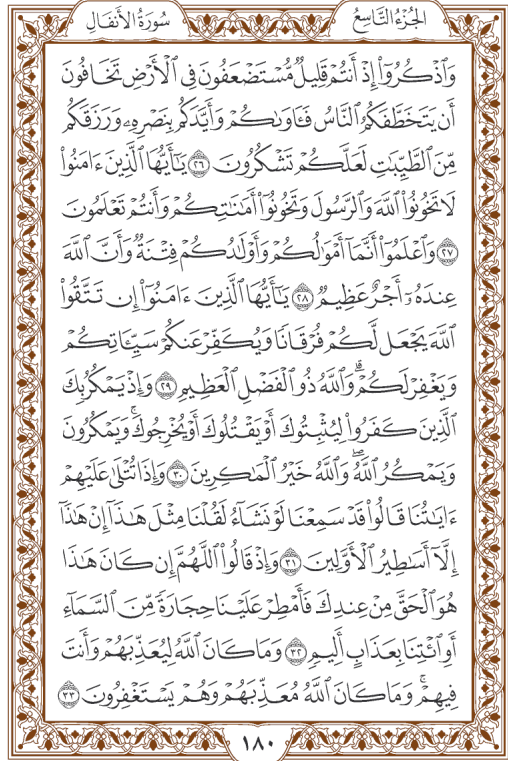 الجُزْءُ التَّاسِعُ
سُورَةُ الأَنفَالِ
وَٱذْكُرُوٓاْ إِذْ أَنتُمْ قَلِيلٌ مُّسْتَضْعَفُونَ فِي ٱلْأَرْضِ تَخَافُونَ
أَن يَتَخَطَّفَكُمُ ٱلنَّاسُ فَـَٔاوَىٰكُمْ وَأَيَّدَكُم بِنَصْرِهِۦ وَرَزَقَكُم
مِّنَ ٱلطَّيِّبَٰتِ لَعَلَّكُمْ تَشْكُرُونَ ٢٦ يَٰٓأَيُّهَا ٱلَّذِينَ ءَامَنُواْ
لَا تَخُونُواْ ٱللَّهَ وَٱلرَّسُولَ وَتَخُونُوٓاْ أَمَٰنَٰتِكُمْ وَأَنتُمْ تَعْلَمُونَ
٢٧ وَٱعْلَمُوٓاْ أَنَّمَآ أَمْوَٰلُكُمْ وَأَوْلَٰدُكُمْ فِتْنَةٌ وَأَنَّ ٱللَّهَ
عِندَهُۥٓ أَجْرٌ عَظِيمٌ ٢٨ يَٰٓأَيُّهَا ٱلَّذِينَ ءَامَنُوٓاْ إِن تَتَّقُواْ
ٱللَّهَ يَجْعَل لَّكُمْ فُرْقَانًا وَيُكَفِّرْ عَنكُمْ سَيِّـَٔاتِكُمْ
وَيَغْفِرْ لَكُمْۗ وَٱللَّهُ ذُو ٱلْفَضْلِ ٱلْعَظِيمِ ٢٩ وَإِذْ يَمْكُرُ بِكَ
ٱلَّذِينَ كَفَرُواْ لِيُثْبِتُوكَ أَوْ يَقْتُلُوكَ أَوْ يُخْرِجُوكَۚ وَيَمْكُرُونَ
وَيَمْكُرُ ٱللَّهُۖ وَٱللَّهُ خَيْرُ ٱلْمَٰكِرِينَ ٣٠ وَإِذَا تُتْلَىٰ عَلَيْهِمْ
ءَايَٰتُنَا قَالُواْ قَدْ سَمِعْنَا لَوْ نَشَآءُ لَقُلْنَا مِثْلَ هَٰذَآ إِنْ هَٰذَآ
إِلَّآ أَسَٰطِيرُ ٱلْأَوَّلِينَ ٣١ وَإِذْ قَالُواْ ٱللَّهُمَّ إِن كَانَ هَٰذَا
هُوَ ٱلْحَقَّ مِنْ عِندِكَ فَأَمْطِرْ عَلَيْنَا حِجَارَةً مِّنَ ٱلسَّمَآءِ
أَوِ ٱئْتِنَا بِعَذَابٍ أَلِيمٍ ٣٢ وَمَا كَانَ ٱللَّهُ لِيُعَذِّبَهُمْ وَأَنتَ
فِيهِمْۚ وَمَا كَانَ ٱللَّهُ مُعَذِّبَهُمْ وَهُمْ يَسْتَغْفِرُونَ ٣٣
١٨٠